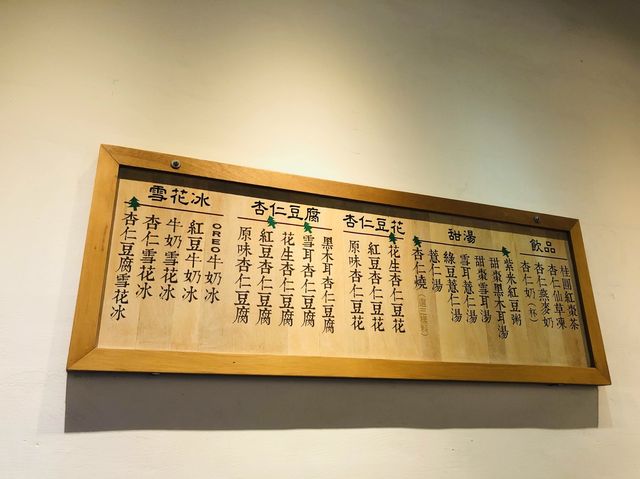 飲品
桂圓紅棗茶
杏仁仙草凍
杏仁燕麥奶
杏仁奶(杯)
甜湯
紫米紅豆粥
甜棗黑木耳湯
甜棗雪耳湯
雪耳薏仁湯
綠豆薏仁湯
薏仁湯
杏仁燒
杏仁豆花
花生杏仁豆花
紅豆杏仁豆花
原味杏仁豆花
杏仁豆腐
黑木耳杏仁豆腐
雪耳杏仁豆腐
花生杏仁豆腐
紅豆杏仁豆腐
原味杏仁豆腐
雪花冰
OREO牛奶冰
紅豆牛奶冰
牛奶雪花冰
杏仁雪花冰
杏仁豆腐雪花冰